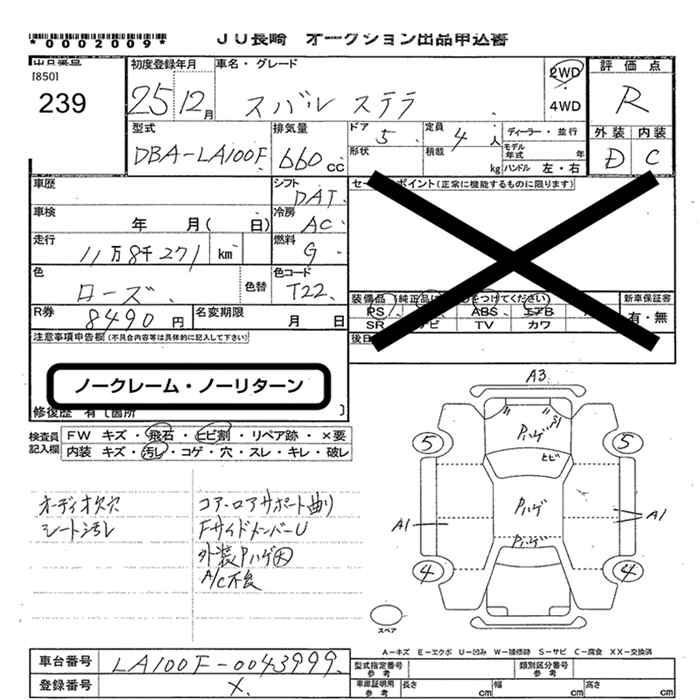 *0002009*
JU長崎 オークション出品申込書
出品番号
[850]
239
初度登録年月
25 12月
車名・グレード
スバル ステラ
2WD
4WD
評価点
R
外装 内装
D C
型式
DBA-LA100F
排気量
660 CC
ドア 5
定員 4 人
形状
積載 kg
ディーラー・並行
モデル年式 年
ハンドル 左・右
車歴
シフト DAT
セールスポイント(正常に機能するものに限ります)
車検 年 月(日)
冷房 AC
走行 11万8千271 km
燃料 G
色 ローズ
色替
色コード T22
装備品
つけてください)
新車保証書
有・無
PS
ABS
エアB
SR
TV
カワ
R券 8490円
名変期限 月 日
注意事項申告欄(不具合内容等は具体的に記入して下さい)
ノークレーム・ノーリターン
修復歴 有[箇所 ]
検査員記入欄
FW キズ・飛石・ヒビ割・リペア跡・×要
内装 キズ・汚レ・コゲ・穴・スレ・キレ・破レ
オーディオ欠穴
シート汚レ
コア・ロアサポート曲り
FサイドメンバーU
外装Pハゲ大
A/C不良
A3
A1
Pハゲ
ヒビ
5
5
Pハゲ
A1
A1
Pハゲ
4
4
スペア
A-キズ E-エクボ U-凹み W-補修跡 S-サビ C-腐食 XX-交換済
車台番号 LA100F-0043999
登録番号 X
型式指定番号 参考
類別区分番号 参考
車庫証明用 参考
長さ cm
幅 cm
高さ cm